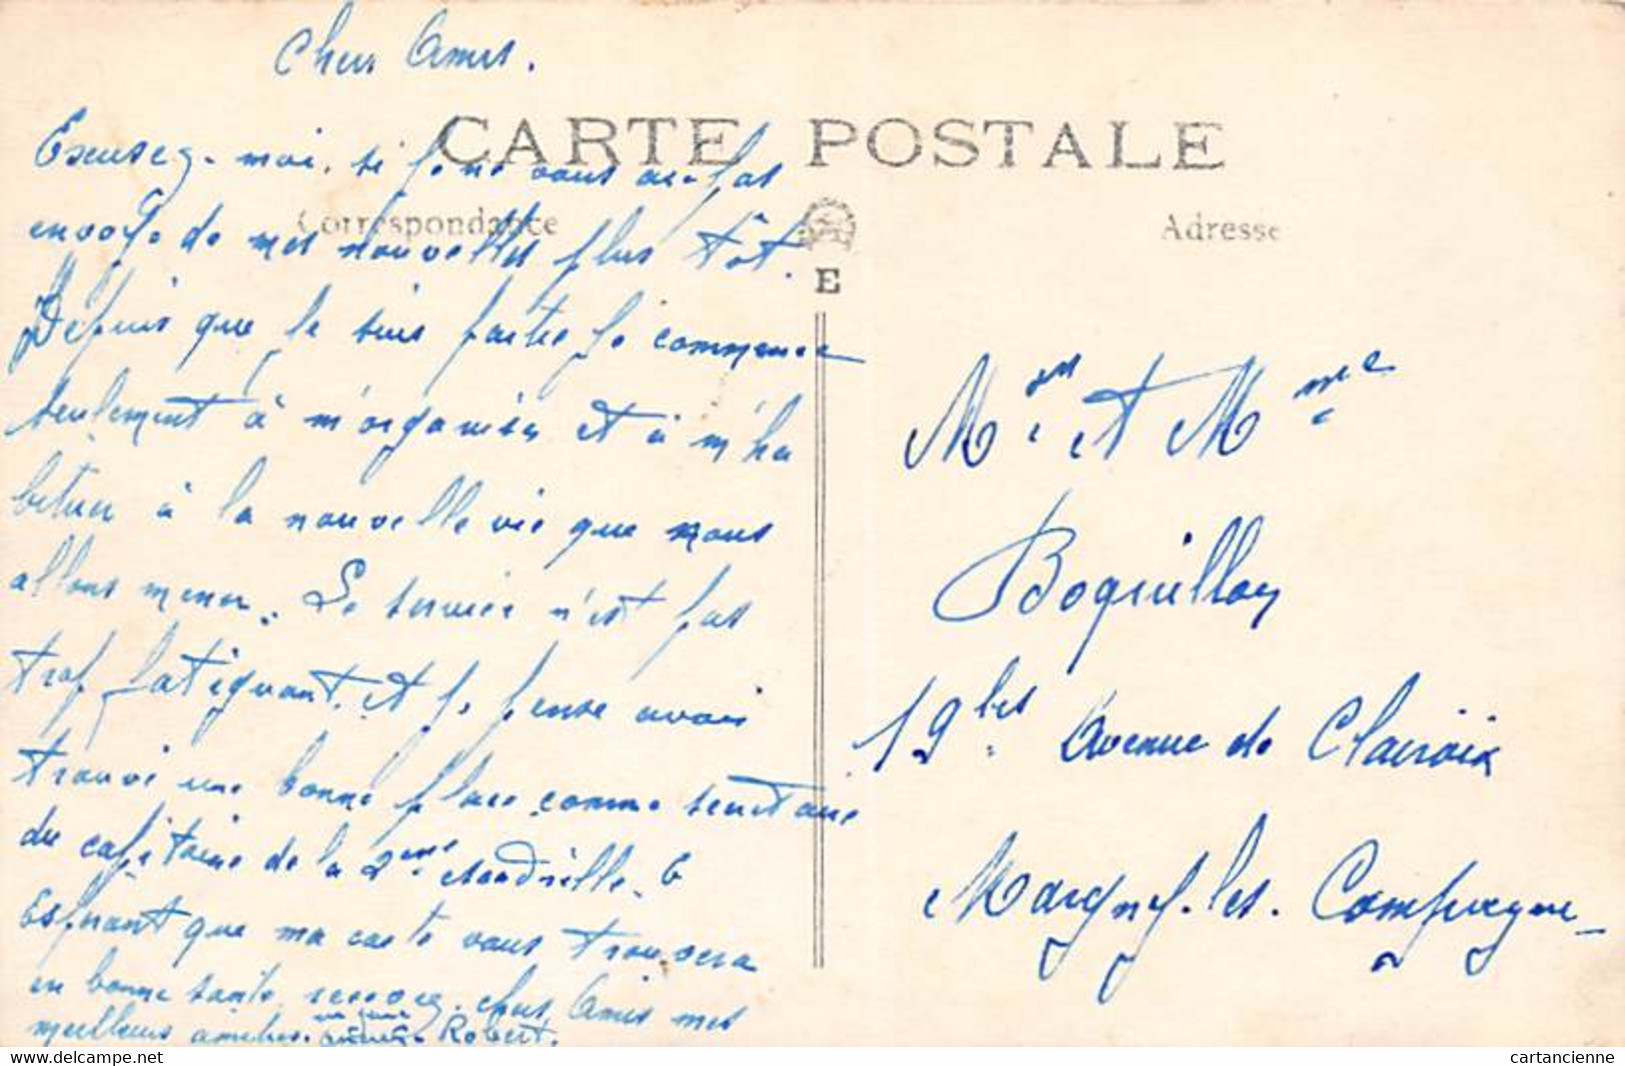 Chers Amis.
CARTE POSTALE
Correspondance
Adresse
E
Excusez-moi, si je ne vous ai pas
envoyé de mes nouvelles plus tôt.
Depuis que je suis partie je commence
seulement à m'organiser et à m'ha
bituer à la nouvelle vie que nous
allons mener. Le service n'est pas
trop fatiguant, et je pense avoir
trouvé une bonne place comme secrétaire
du capitaine de la 2eme
Espérant que ma carte vous trouvera
en bonne santé, recevez, chers Amis mes
meilleurs amitiés. Robert.
Mr. et Mme
Boquillon
19 bis Avenue de Clairoix
Margny-les-Compiegne
cartancienne